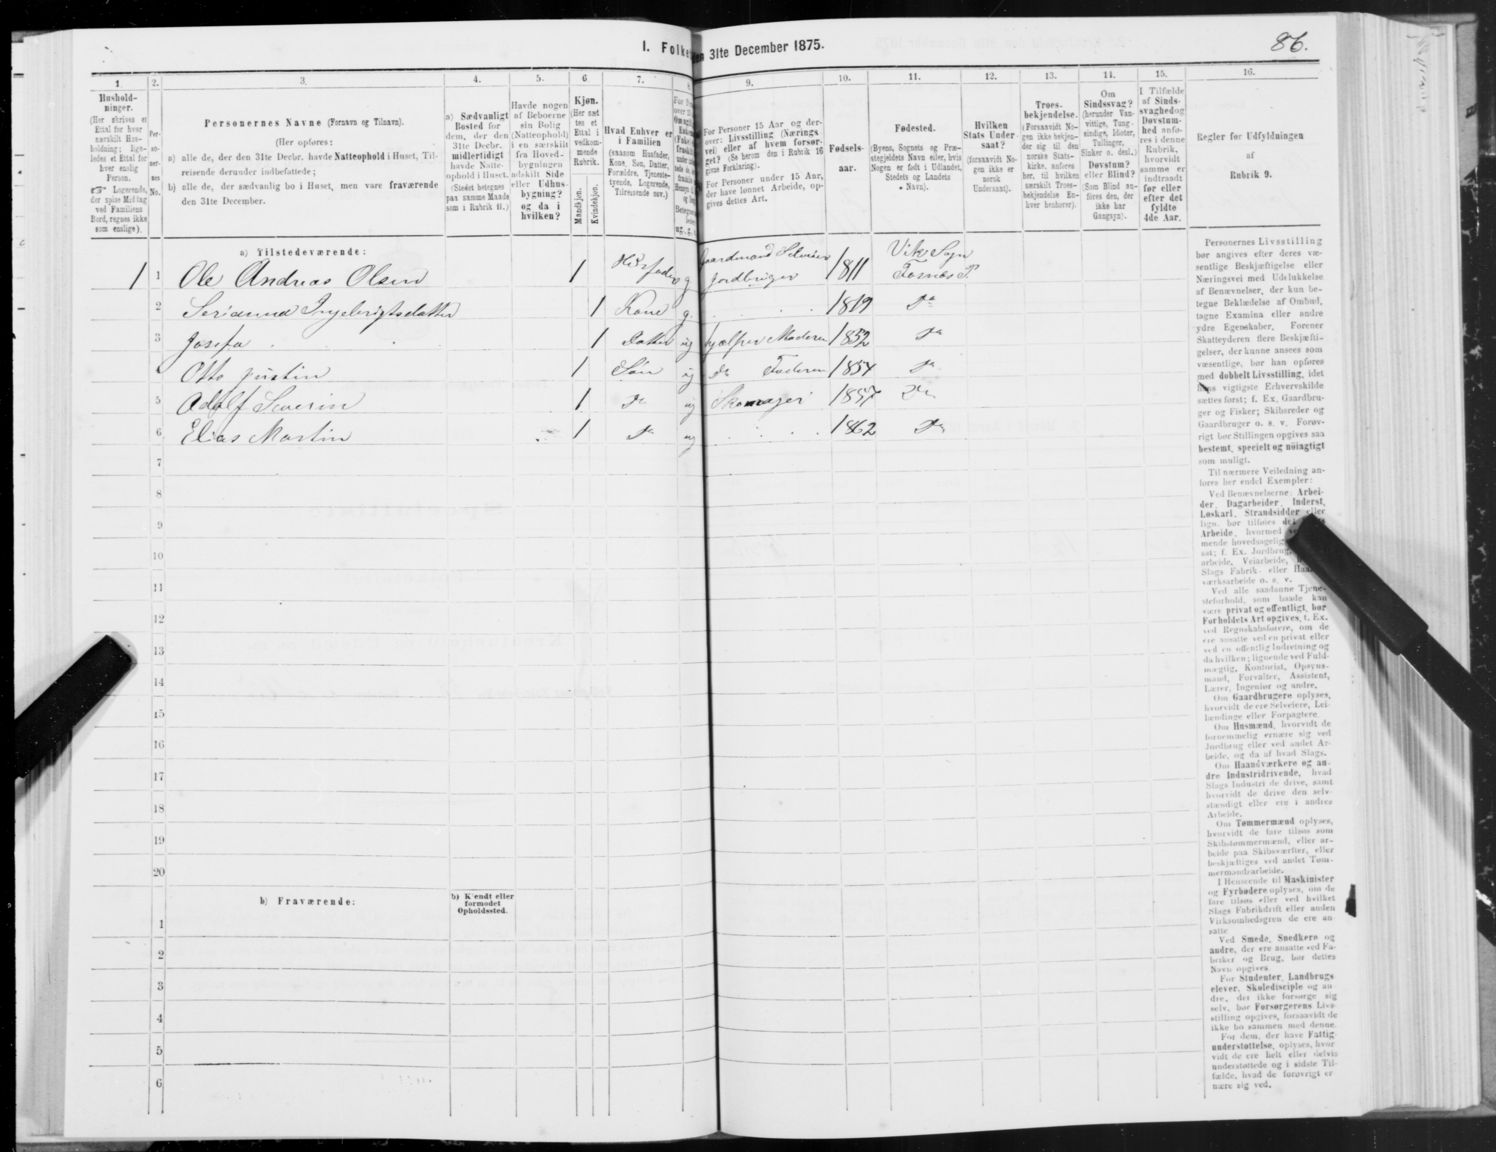 I. Folke en 31te December 1875.
86.
1. 2. 3. 4. 5. 6. 7. 8. 9. 10. 11. 12. 13. 14. 15. 16.
Hushold-
ninger.
(Her skrives et
Ettal for hver
særskilt Hus-
holdning; lige-
ledes et Ettal for
hver enslig
Person.
Logerende,
der spise Middag
ved Familiens
Bord, regnes ikke
som enslige).
Per-
so-
ner-
nes
No.
Personernes Navne (Fornavn og Tilnavn).
(Her opføres:
a) alle de, der den 31te Decbr. havde Natteophold i Huset, Til-
reisende derunder indbefattede;
b) alle de, der sædvanlig bo i Huset, men vare fraværende
den 31te December.
a) Sædvanligt
Bosted for
dem, der den
31te Decbr.
midlertidigt
havde Natte-
ophold i Huset.
(Stedet betegnes
paa samme Maade
som i Rubrik 11.)
Havde nogen
af Beboerne
sin Bolig
(Natteophold)
i en særskilt
fra Hoved-
bygningen
adskilt Side
eller Udhus-
bygning?
og da i
hvilken?
Kjøn.
(Her sæt
tes et
Ettal i
vedkom-
mende
Rubrik.
Mandkjøn.
Kvindekjøn.
Hvad Enhver er
i Familien
(saasom Husfader,
Kone, Søn, Datter,
Forældre, Tjeneste-
tyende, Logerende,
Tilreisende osv.)
For Personer 15 Aar og der-
over: Livsstilling (Nærings
vei) eller af hvem forsør-
get? (Se herom den i Rubrik 16
givne Forklaring).
For Personer under 15 Aar,
der have lønnet Arbeide, op-
gives dettes Art.
Fødsels-
aar.
Fødested.
(Byens, Sognets og Præ-
stegjeldets Navn eller, hvis
Nogen er født i Udlandet,
Stedets og Landets
Navn).
Hvilken
Stats Under-
saat?
(forsaavidt No-
gen ikke er
norsk
Undersaat).
Troes-
bekjendelse.
(Forsaavidt No-
gen ikke bekjen-
der sig til den
norske Stats-
kirke, anføres
her, til hvilken
særskilt Troes-
bekjendelse En-
hver henhører).
Om
Sindssvag?
(herunder Van-
vittige, Tung-
sindige, Idioter,
Tullinger,
Sinker o. desl.)
Døvstum?
eller Blind?
(Som Blind an-
føres den, der
ikke har
Gangsyn).
I Tilfælde
af Sinds-
svaghed og
Døvstum-
hed anfø-
res i denne
Rubrik,
hvorvidt
samme er
indtraadt
før eller
efter det
fyldte
4de Aar.
Regler for Udfyldningen
af
Rubrik 9.
a) Tilstedeværende:
1 1 Ole Andreas Olsen 1 Husfader g Gaardmand Selveier Jordbruger 1811 Vik Sogn Fosnæs P.
2 Serianna Ingebrigtsdatter 1 Kone g. 1819 Do
3 Josefa 1 Datter ug hjælper Moderen 1852 Do
Otto Justin 1 Søn ug do Faderen 1854 Do
5 Adolf Severin 1 Do ug Skomager 1857 Do
6 Elias Martin 1 Do ug 1862 Do
7
8
9
10
11
12
13
14
15
16
17
18
19
20
b) Fraværende:
b) Kjendt eller
formodet
Opholdssted.
1
2
3
4
5
6
Personernes Livsstilling
bør angives efter deres væ-
sentlige Beskjæftigelse eller
Næringsvei med Udelukkelse
af Benævnelser, der kun be-
tegne Beklædelse af Ombud,
tagne Examina eller andre
ydre Egenskaber. Forener
Skatteyderen flere Beskjæfti-
gelser, der kunne ansees som
væsentlige, bør han opføres
med dobbelt Livsstilling, idet
hans vigtigste Erhvervskilde
sættes først; f. Ex. Gaardbru-
ger og Fisker; Skibsreder og
Gaardbruger o. s. v. Forøv-
rigt bør Stillingen opgives saa
bestemt, specielt og nöiagtigt
som muligt.
Til nærmere Veiledning an-
føres her endel Exempler:
Ved Benævnelserne: Arbei-
der, Dagarbeider, Inderst,
Løskarl, Strandsidder eller
lign. bør tilføies
Arbeide, hvormed
mende hovedsagelig
sat; f. Ex. Jordbrug
arbeide, Veiarbeide,
Slags Fabrik- eller Haand
værksarbeide o. s. v.
Ved alle saadanne Tjene-
steforhold, som baade kan
være privat og offentligt, bør
Forholdets Art opgives, f. Ex.
ved Regnskabsførere, om de
ere ansatte ved en privat eller
ved en offentlig Indretning og
da hvilken; lignende ved Fuld-
mægtig, Kontorist, Opsyns-
mand, Forvalter, Assistent,
Lærer, Ingeniør og andre.
Om Gaardbrugere oplyses,
hvorvidt de ere Selveiere, Lei-
lændinge eller Forpagtere.
Om Husmænd, hvorvidt de
fornemmelig ernære sig ved
Jordbrug eller ved andet Ar-
beide, og da af hvad Slags.
Om Haandværkere og an-
dre Industridrivende, hvad
Slags Industri de drive, samt
hvorvidt de drive den selv-
stændigt eller ere i andres
Arbeide.
Om Tømmermænd oplyses,
hvorvidt de fare tilsøs som
Skibstømmermænd, eller ar-
beide paa Skibsværfter, eller
beskjæftiges ved andet Tøm-
mermandsarbeide.
I Henseende til Maskinister
og Fyrbødere oplyses, om de
fare tilsøs eller ved hvilket
Slags Fabrikdrift eller anden
Virksomhedsgren de ere an-
satte
Ved Smede, Snedkere og
andre, der ere ansatte ved Fa-
briker og Brug, bør dettes
Navn opgives.
For Studenter, Landbrugs
elever, Skoledisciple og an-
dre, der ikke forsørge sig
selv, bør Forsørgerens Livs-
stilling opgives, forsaavidt de
ikke bo sammen med denne.
For dem, der have Fattig-
understøttelse, oplyses, hvor
vidt de ere helt eller delvis
understøttede og i sidste Til-
fælde, hvad de forøvrigt er
nære sig ved.